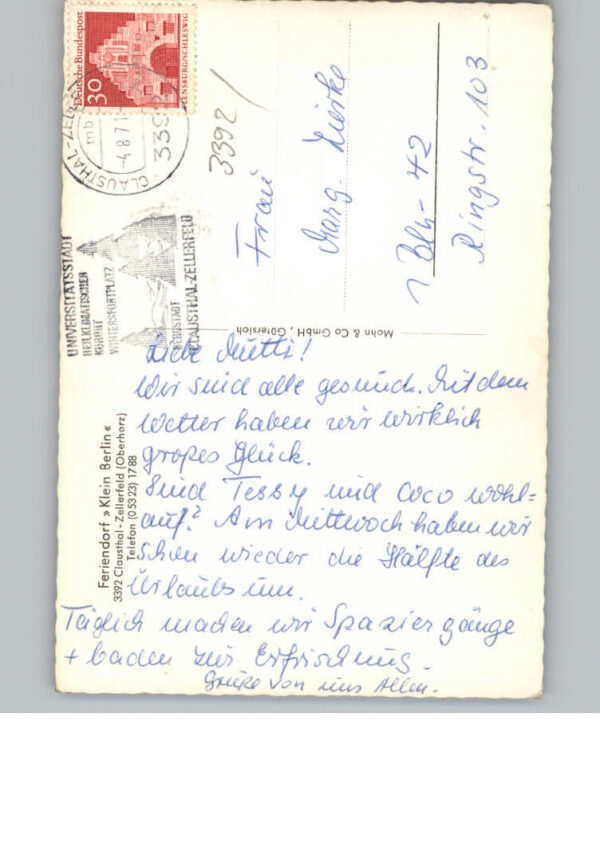 Deutsche Bundespost
30
FLENSBURG/SCHLESWIG
CLAUSTHAL-ZELLERFELD
-4.8.71
mb
3392
UNIVERSITÄTSSTADT
HEILKLIMATISCHER
KURORT
WINTERSPORTPLATZ
BERGSTADT
CLAUSTHAL-ZELLERFELD
3392 /
Frau
Marg. Zierke
1 Bln-42
Ringstr. 103
Mohn & Co GmbH, Gütersloh
Feriendorf »Klein Berlin«
3392 Clausthal-Zellerfeld (Oberharz)
Telefon (05323) 1788
Liebe Mutti!
Wir sind alle gesund. Mit dem
Wetter haben wir wirklich
großes Glück.
Sind Tessy und Coco wohl=
auf? Am Mittwoch haben wir
schon wieder die Hälfte des
Urlaubs um.
Täglich machen wir Spaziergänge
+ baden zur Erfrischung.
Grüße von uns Allen.